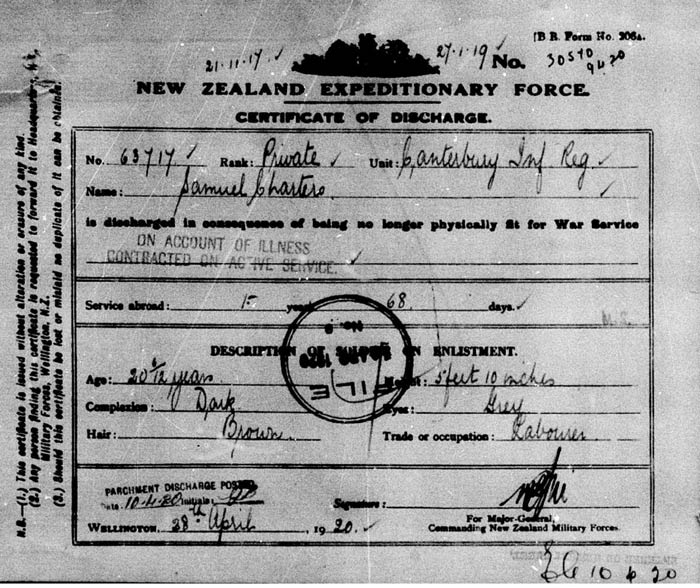 B R. Form No. 206A.
21·11·17 27·1·19 No. 30570
9420
NEW ZEALAND EXPEDITIONARY FORCE.
CERTIFICATE OF DISCHARGE.
No. 63717 Rank: Private Unit: Canterbury Inf Reg
Name: Samuel Charters
is discharged in consequence of being no longer physically fit for War Service
ON ACCOUNT OF ILLNESS
CONTRACTED ON ACTIVE SERVICE.
Service abroad: 1 year 68 days.
DESCRIPTION OF ON ENLISTMENT.
FILE
Age: 20 years 5 feet 10 inches
Complexion: Dark Eyes: Grey
Hair: Brown Trade or occupation: Labourer
PARCHMENT DISCHARGE POSTED
Date: 10.6.20 Initials:
Signature:
WELLINGTON, 28th April 1920.
For Major-General,
Commanding New Zealand Military Forces.
10 6 20
N.B.—(1.) This certificate is issued without alteration or erasure of any kind.
(2.) Any person finding this certificate is requested to forward it to Headquarters, N.Z.
Military Forces, Wellington, N.Z.
(3.) Should this certificate be lost or mislaid no duplicate of it can be obtained.